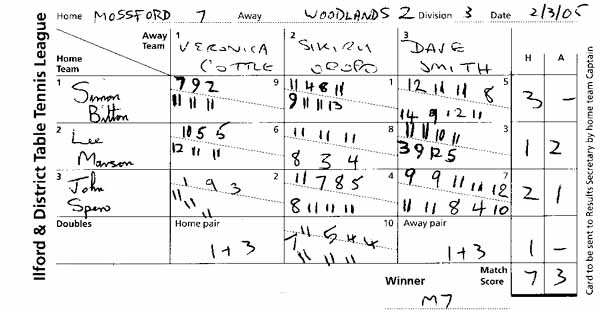 Ilford & District Table Tennis League
Home MOSSFORD 7 Away WOODLANDS 2 Division 3 Date 2/3/05
Away Team
Home Team
1 VERONICA COTTLE
2 SIKIRU
3 DAVE SMITH
H A
1 Simon Bitton
9 7 9 2
11 11 11
1 11 4 8 11
9 11 11 13
5 12 11 11 8
14 9 12 11
3 -
2 Lee Marson
6 10 5 5
12 11 11
8 11 11 11
8 3 4
3 11 11 10 11
3 9 12 5
1 2
3 John Spero
2 1 9 3
11 11 11
4 11 7 8 5
8 11 11 11
7 9 9 11 11 12
11 11 8 4 10
2 1
Doubles
Home pair
1+3
10
11 5 4 4
7 11 11 11
Away pair
1+3
1 -
Winner
M7
Match Score
7 3
Card to be sent to Results Secretary by home team Captain